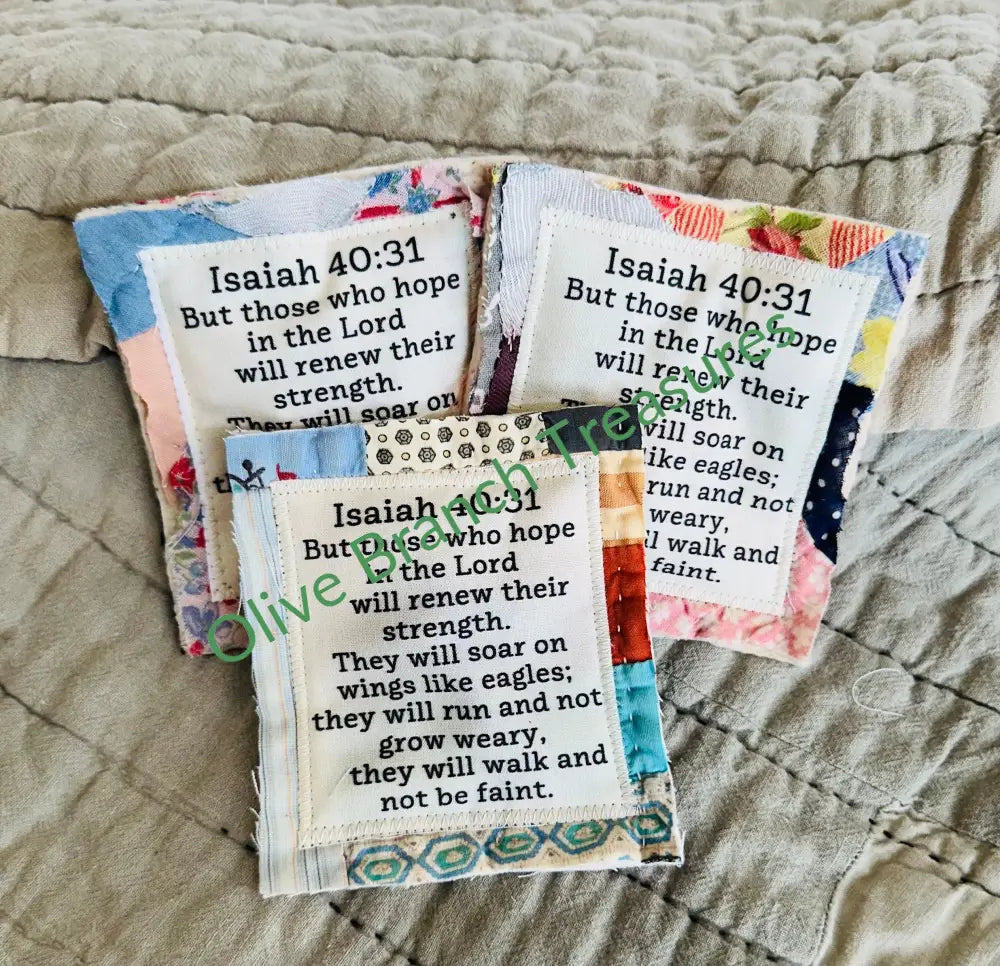 Isaiah 40:31
But those who hope
in the Lord
will renew their
strength.
They will soar on
Isaiah 40:31
But those who hope
in the Lord
will renew their
strength.
will soar on
like eagles;
run and not
weary,
walk and
faint.
Isaiah 40:31
But those who hope
in the Lord
will renew their
strength.
They will soar on
wings like eagles;
they will run and not
grow weary,
they will walk and
not be faint.
Olive Branch Treasures